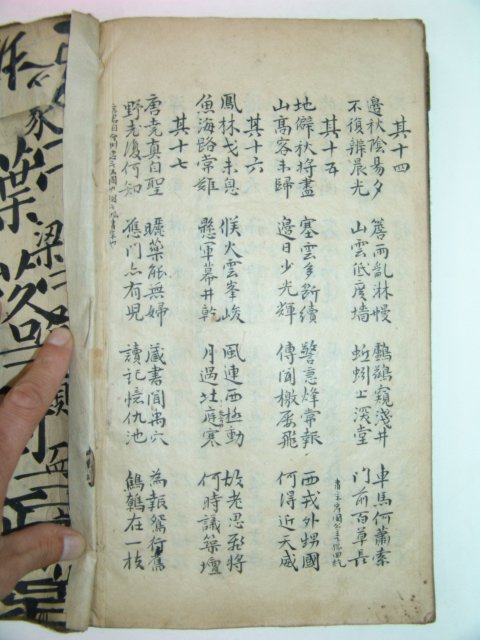 其十四
邊秋陰易夕 簷雨亂淋幔 鸕鶿窺淺井 車馬何蕭索
不復辨晨光 山雲低度墻 蚯蚓上深堂 門前百草長
其十五
地僻秋將盡 塞雲多斷續 警急烽常報 西戎外甥國
山高客未歸 邊日少光輝 傳聞檄屢飛 何得近天威
其十六
鳳林戈未息 候火雲峯峻 風連西極動 故老思飛將
魚海路常難 懸軍幕井乾 月過北庭寒 何時議築壇
其十七
唐堯真自聖 曬藥能無婦 藏書聞禹穴 為報鴛行舊
野老復何知 應門亦有兒 讀記憶仇池 鷦鷯在一枝